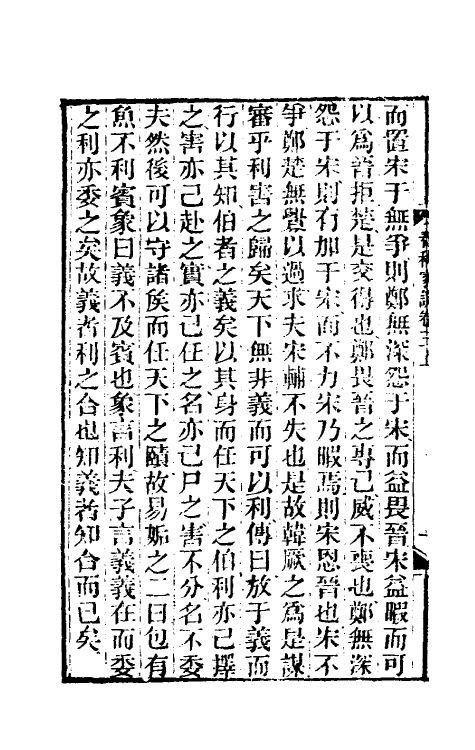 而置宋于無爭則鄭無深怨于宋而益畏晉宋益暇而可
以爲晉拒楚是交得也鄭畏晉之專己威不喪也鄭無深
怨于宋則有加于宋而不力宋乃暇焉則宋恩晉也宋不
爭鄭楚無釁以過求夫宋輔不失也是故韓厥之爲是謀
審乎利害之歸矣天下無非義而可以利傳曰放于義而
行以其知伯者之義矣以其身而任天下之伯利亦己擇
之害亦己赴之實亦己任之名亦己尸之害不分名不委
夫然後可以守諸矦而任天下之賾故易姤之二曰包有
魚不利賓象曰義不及賓也象言利夫子言義義在而委
之利亦委之矣故義者利之合也知義者知合而已矣
春秋家說卷